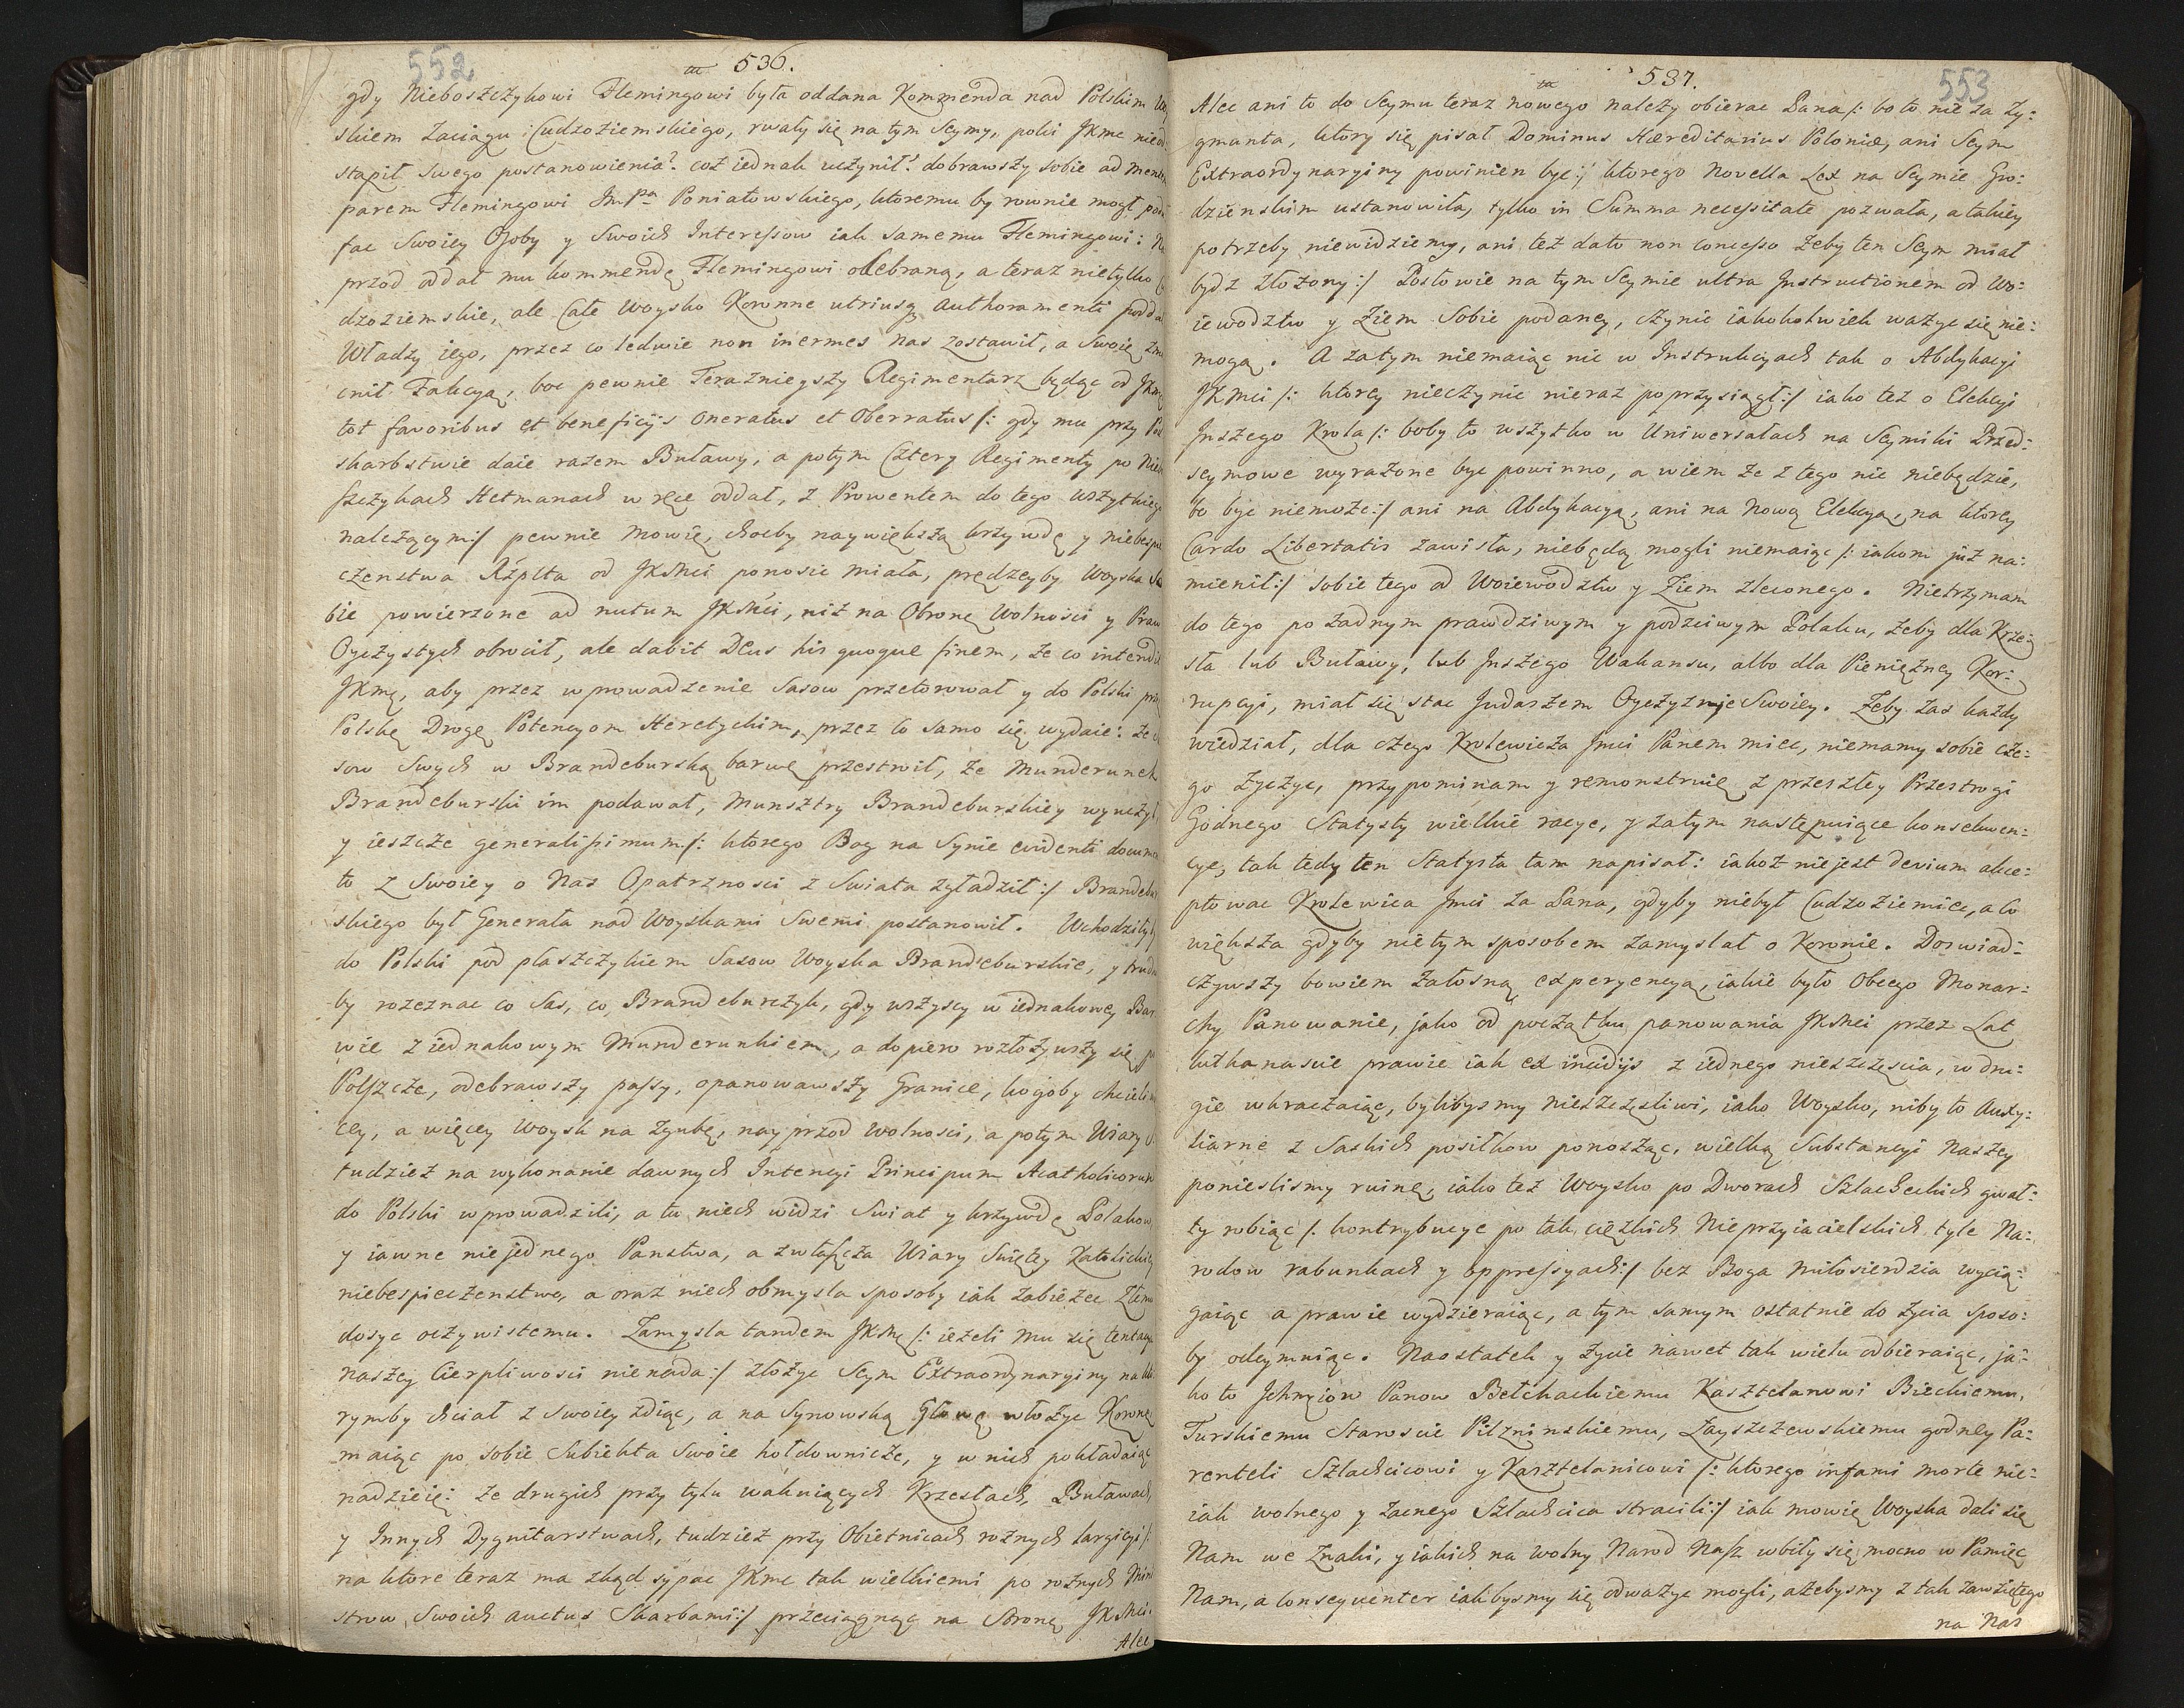 552
536.
gdy Nieboszczykowi Flemingowi była oddana Kommenda nad Polskim
skiem Zaciągu Cudzoziemskiego, rwały się na tym Seymy, poki JKmc nieod
stąpił Swego postanowienia? coż iednak uczynił? dobrawszy sobie ad
parem Flemingowi Jmpa Poniatowskiego, ktoremu by rownie mogł
fac Swoiey Osoby y Swoich Interessow iak samemu Flemingowi:
przod oddał mu kommendę Flemingowi odebraną, a teraz nietylko
dzoziemskie, ale Całe Woysko Koronne utriusq Authoramenti podda
Władzy iego, przez co ledwie non inermes nas zostawił, a Swoię
cnił Fakcyą, boc pewnie Teraznieyszy Regimentarz będąc od JKmc
tot favoribus et beneficijs oneratus et oberratus /: gdy mu przy Pod
skarbstwie daie razem Buławy, a potym Cztery Regimenty po
szczykach Hetmanach w ręce oddał, z Prowentem do tego wszytkiego
nalezącym:/ pewnie mowię, choćby naywiększą krzywdę y niebespie
czenstwa Rzplta od JKMci ponosic miała, prędzeyby Woyska
bie powierzone ad nutum JKMci, niż na Obronę Wolnosci y Praw
Oyczystych obrocił, ale dabit Deus his quoque finem, że co
JKmę, aby przez wprowadzenie Sasow przetorował y do Polski
Polskę Drogę Potencyom Heretyckim, przez to samo się wydaie: że
sow Swych w Brandeburską barwę przestroił, że Munderunek
Brandeburski im podawał, Munsztry Brandeburskiey wyuczył,
y ieszcze generalissimum /: ktorego Bog na Synie evidenti docume
to z Swoiey o Nas Opatrznosci z Swiata zgładził:/
skiego był Generała nad Woyskami Swemi postanowił. Wchodziły
do Polski pod płaszczykiem Sasow Woyska Brandeburskie, y
by rozeznac co Sas, co Brandeburczyk, gdy wszyscy w iednakowey Bar
wie z iednakowym Munderunkiem, a dopiero rozłożywszy się
Polszcze, odebrawszy passy, opanowawszy Granice, kogoby chcieli
cey, a więcey Woysk na zgubę, nayprzod Wolnosci, a potym Wiary
tudziez na wykonanie dawnych Intencyi Principum Acatholicorum
do Polski wprowadzili, a tu niech widzi Swiat y krzywdę Polakow,
y iawne niejednego Panstwa, a zwłaszcza Wiary Swiętey Katolickiey
niebespieczenstwo, a oraz niech obmysla sposoby iak zabieżec
dosyc oczywistemu. Zamysla tandem JKMc /: ieżeli mu się
naszey Cierpliwosci nienada:/ złożyc Seym Extraordynaryiny na
rymby chciał z Swoiey zdiąc, a na Synowską Głowę włożyc Koronę
maiąc po sobie Subiekta Swoie hołdownicze, y w nich pokładaiąc
nadzieię: że drugich przy tylu wakuiących Krzesłach, Buławach,
y Innych Dygnitarstwach, tudziez przy Obietnicach rożnych largicyi /:
na ktore teraz ma zkąd sypac JKmc tak wielkiemi po rożnych Mini
strow Swoich auctus Skarbami:/ przeciągnąc na Stronę JKMci.
Alec
537.
553
Alec ani to do Seymu teraz nowego należy obierac Pana /: bo to nie za Zy-
gmunta, ktory się pisał Dominus Hæreditarius Poloniæ, ani Seym
Extraordynaryiny powinien byc:/ ktorego Novella Lex na Seymie Gro-
dzienskim ustanowiła, tylko in Summa necessitate pozwala, a takiey
potrzeby niewidziemy, ani też dato non concesso żeby ten Seym miał
bydz złożony:/ Posłowie na tym Seymie ultra Instructionem od Wo-
iewodztw y Ziem Sobie podaney, czynic iakokolwiek ważyc się nie-
mogą. A zatym niemaiąc nic w Instrukcyach tak o Abdykacyi
JKMci /: ktorey nieczynic nieraz poprzysiągł:/ iako tez o Elekcyi
Jnszego Krola /: boby to wszytko w Uniwersałach na Seymiki Przed-
seymowe wyrażone byc powinno, a wiem że z tego nic niebędzie,
bo byc niemoże:/ ani na Abdykacyą, ani na Nową Elekcyą, na ktorey
Cardo Libertatis zawisła, niebędą mogli niemaiąc /: iakom już na-
mienił:/ sobie tego od Woiewodztw y Ziem zleconego. Nietrzymam
do tego po żadnym prawdziwym y podsciwym Polaku, żeby dla Krze-
sła lub Buławy, lub Jnszego Wakansu, albo dla Pieniężney Kor-
rupcyi, miał się stac Judaszem Oyczyznie Swoiey. Zeby zas każdy
wiedział, dla czego Krolewica Jmci Panem miec, niemamy sobie cze-
go życzyc, przypominam y remonstruię z przeszłey Przestrogi
Godnego Statysty wielkie racye, y zatym następuiące konsekwen-
cye, tak tedy ten Statysta tam napisał: iakoż nie jest devium akce-
ptowac Krolewica Jmci za Pana, gdyby niebył Cudzoziemiec, a co
większa gdyby nie tym sposobem zamyslał o Koronie. Doswiad-
czywszy bowiem żałosną experyencyą, iakie było Obcego Monar-
chy Panowanie, jako od początku panowania JKMci przez Lat
kilkanascie prawie iak ex incidijs z iednego nieszczęscia, w dru-
gie wkraczaiąc, bylibysmy nieszczęsliwi, iako Woysko, niby to Auxy-
liarne z Saskich posiłkow ponosząc, wielką Substancyi Naszey
ponieslismy ruinę, iako tez Woysko po Dworach Szlacheckich gwał-
ty robiąc /: kontrybucye po tak cięzkich Nieprzyiacielskich tyle Na-
rodow rabunkach y oppressyach:/ bez Boga Miłosierdzia wycią-
gaiąc a prawie wydzieraiąc, a tym samym ostatnie do życia sposo-
by odeymuiąc. Naostatek y życie nawet tak wielu odbieraiąc, ja-
ko to Jchmciow Panow Bełchackiemu Kasztelanowi Bieckiemu,
Turskiemu Staroscie Pilzninskiemu, Zayszczewskiemu godney Pa-
renteli Szlachcicowi y Kasztelanicowi /: ktorego infami morte nie-
iak wolnego y zacnego Szlachcica stracili:/ iak mowię Woyska dali się
Nam we Znaki, y iakich na wolny Narod Nasz wbiły się mocno w Pamięc
Nam, a consequenter iakbysmy się odważyc mogli, ażebysmy z tak zawziętego
na Nas